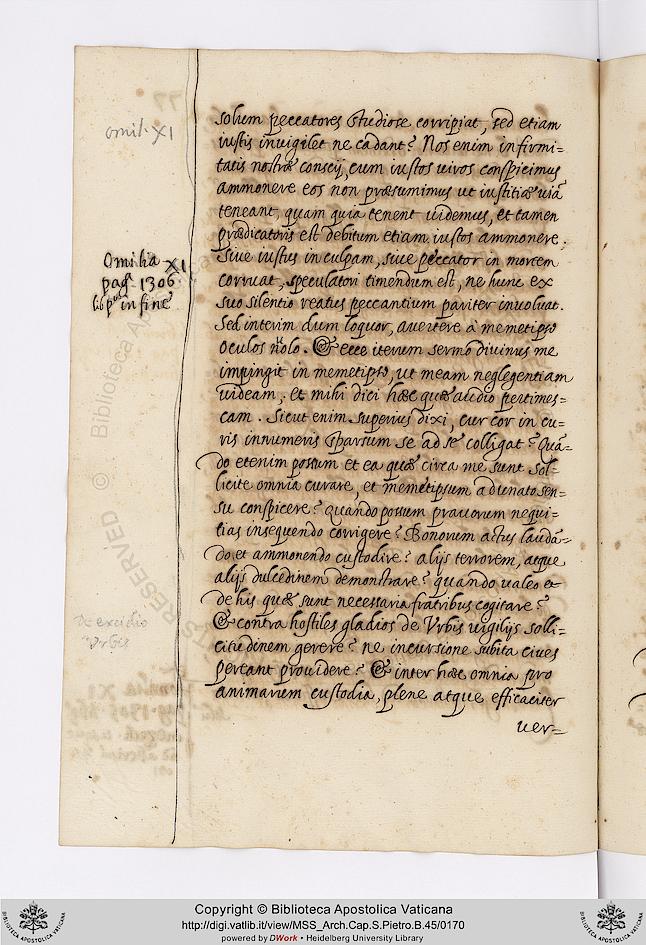 omil. XI
solum peccatores studiose corripiat, sed etiam
iustis invigilet ne cadant? Nos enim infirmi=
tatis nostræ conscij, cum iustos viros conspicimus
ammonere eos non præsumimus ut iustitiæ viā
teneant, quam quia tenent videmus, et tamen
prædicatoris est debitum etiam iustos ammonere.
Omilia XI
pagª 1306
in fine
Sive iustus in culpam, sive peccator in mortem
corruat, speculatori timendum est, ne hunc ex
suo silentio reatus peccantium pariter involvat.
Sed interim dum loquor, avertere à memetipso
oculos nolo. Et ecce iterum sermo divinus me
impingit in memetipso, ut meam neglegentiam
videam, et mihi dici hæc quæ audio pertimes=
cam. Sicut enim superius dixi, cur cor in cu=
ris innumeris sparsum se ad se colligat? Quā=
do etenim possum et ea quæ circa me sunt sol=
licite omnia curare, et memetipsum adunato sen=
su conspicere? quando possum pravorum nequi=
tias insequendo corrigere? Bonorum actus laudā=
do et ammonendo custodire? alijs terrorem, atque
alijs dulcedinem demonstrare? quando valeo et
de his quæ sunt necessaria fratribus cogitare?
De excidio
Urbis
Et contra hostiles gladios de Urbis vigilijs solli=
citudinem gerere? ne incursione subita cives
pereant providere? Et inter hæc omnia pro
animarum custodia, plene atque efficaciter
ver=
Copyright © Biblioteca Apostolica Vaticana
http://digi.vatlib.it/view/MSS_Arch.Cap.S.Pietro.B.45/0170
powered by DWork • Heidelberg University Library